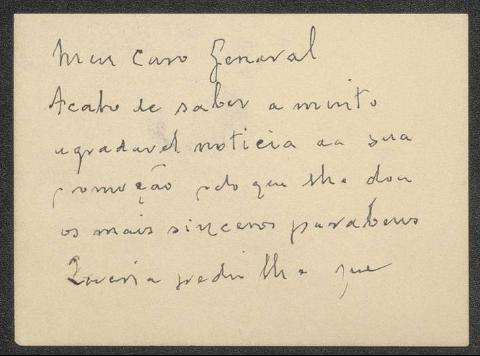 Meu caro General
Acabo de saber a muito
agradavel noticia da sua
promoção pelo que lhe dou
os mais sinceros parabens
Queria pedir lhe que